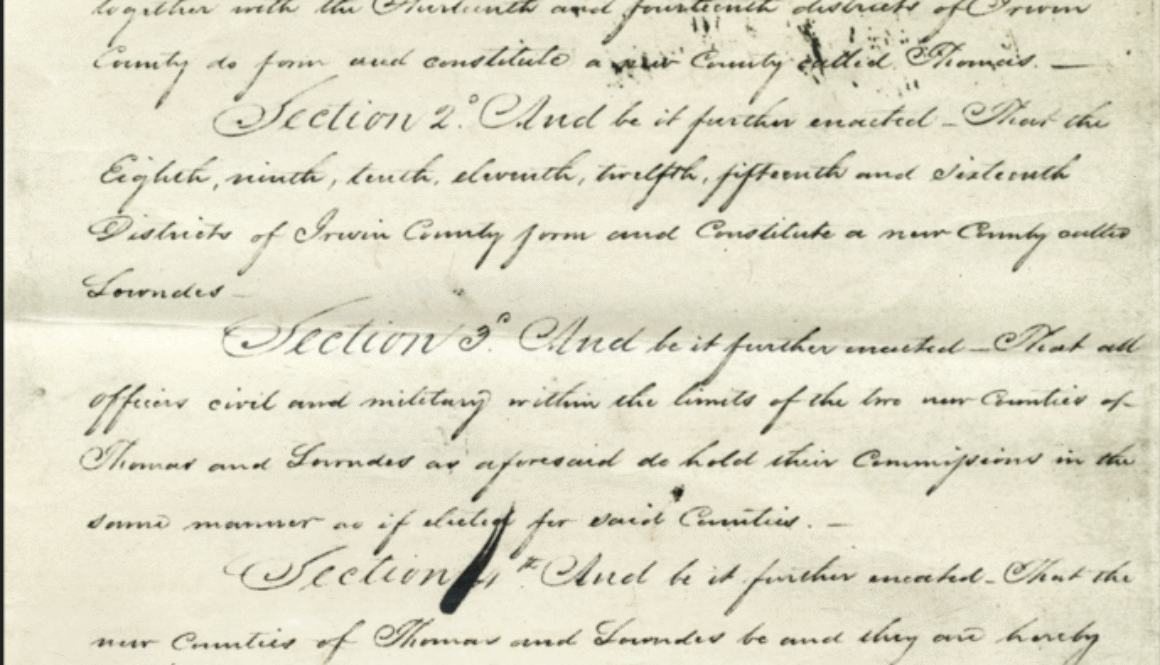 together with the Thirteenth and fourteenth districts of Irwin
County do form and constitute a new County called Thomas. —
Section 2d. And be it further enacted – That the
Eighth, ninth, tenth, eleventh, twelfth, fifteenth and sixteenth
Districts of Irwin County form and Constitute a new County called
Lowndes –
Section 3d. And be it further enacted – That all
officers civil and military within the limits of the two new Counties of
Thomas and Lowndes as aforesaid do hold their Commissions in the
same manner as if elected for said Counties. –
Section 4th And be it further enacted – That the
new Counties of Thomas and Lowndes be and they are hereby